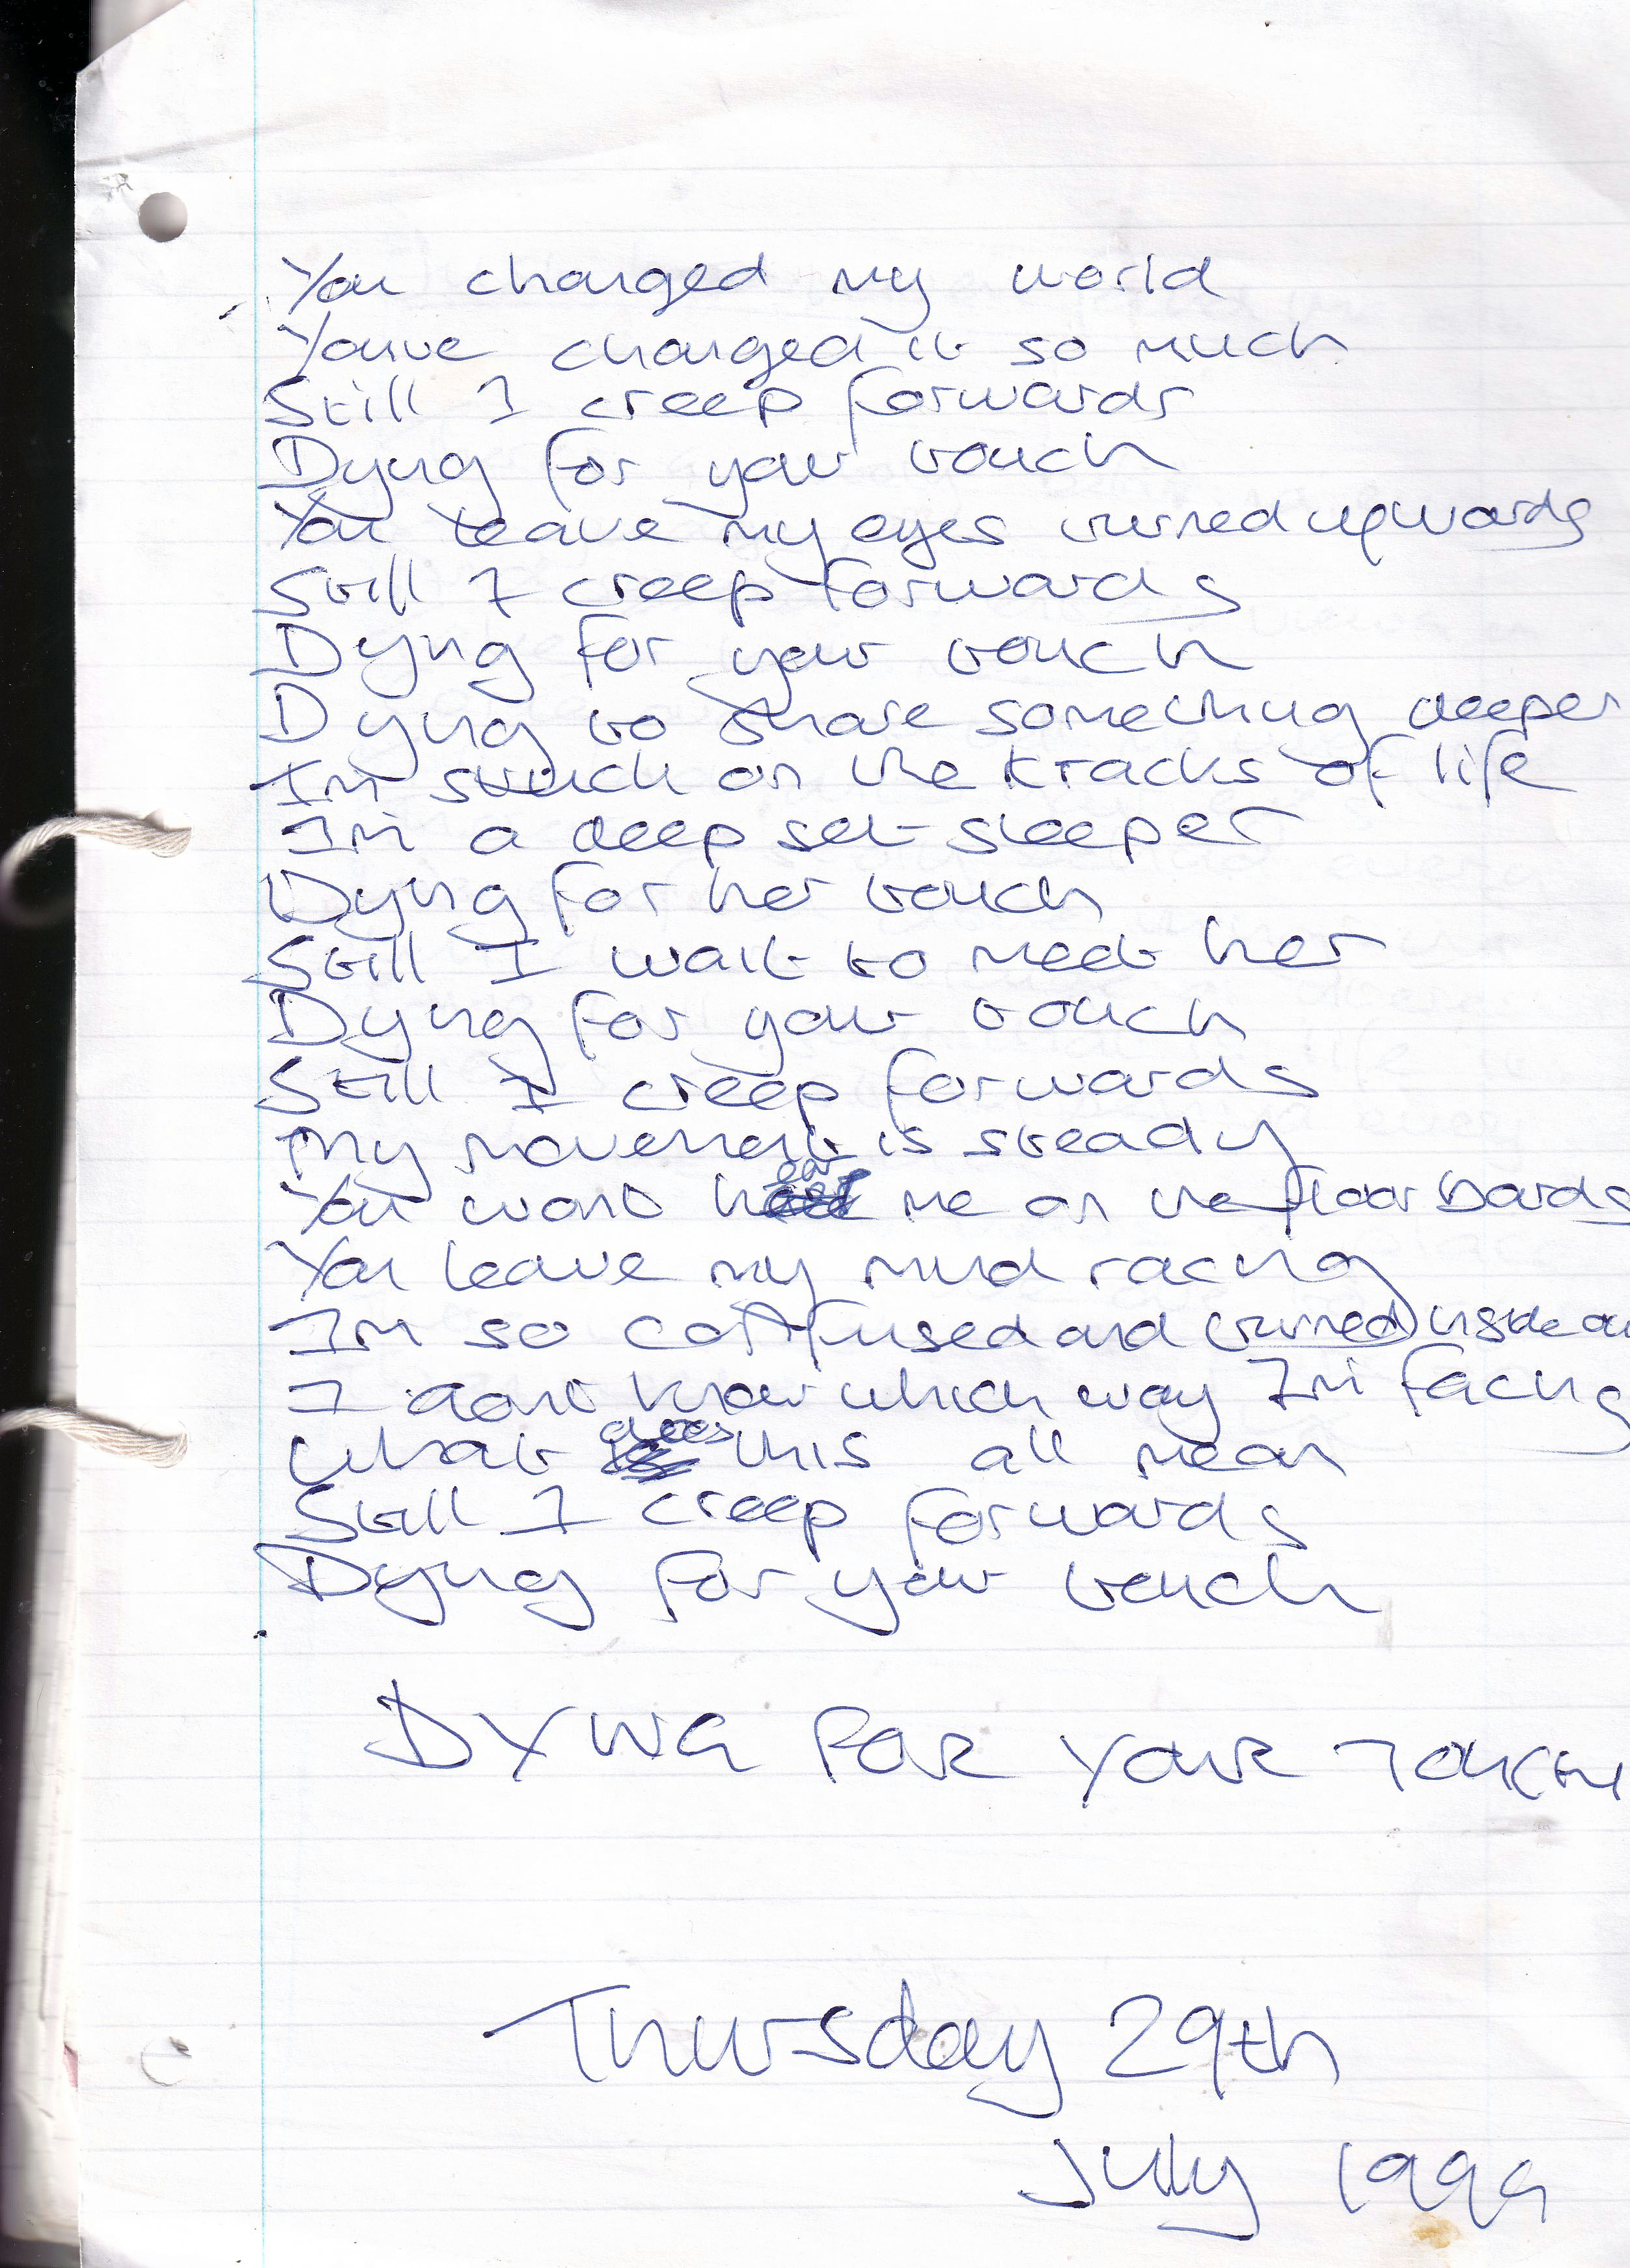 You changed my world
Youve changed it so much
Still I creep forwards
Dying for your touch
You leave my eyes turned upwards
Still I creep forwards
Dying for your touch
Dying to share something deeper
Im stuck on the tracks of life
Im a deep set sleeper
Dying for her touch
Still I wait to meet her
Dying for your touch
Still I creep forwards
My movement is steady
You wont hear me on the floor boards
You leave my mind racing
Im so confused and turned inside ou
I dont know which way Im facing
What does this all mean
Still I creep forwards
Dying for your touch
DYING FOR YOUR TOUCH
Thursday 29th
July 1999